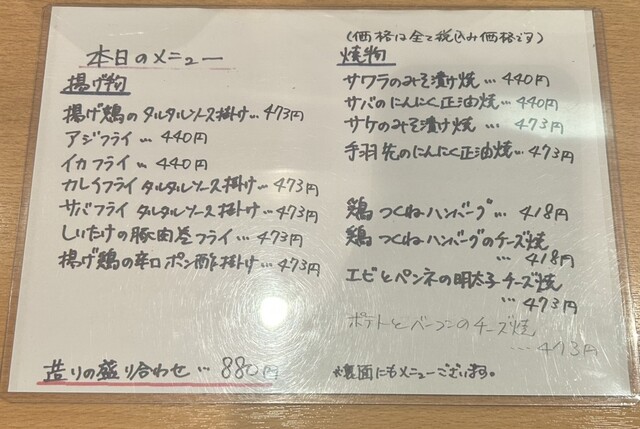 本日のメニュー
揚げ物
揚げ鶏のタルタルソース掛け…473円
アジフライ…440円
イカフライ…440円
カレイフライタルタルソース掛け…473円
サバフライタルタルソース掛け…473円
しいたけの豚肉巻フライ…473円
揚げ鶏の辛口ポン酢掛け…473円
造りの盛り合わせ…880円
(価格は全て税込み価格です)
焼物
サワラのみそ漬け焼…440円
サバのにんにく正油焼…440円
サケのみそ漬け焼…473円
手羽先のにんにく正油焼…473円
鶏つくねハンバーグ…418円
鶏つくねハンバーグのチーズ焼
…418円
エビとペンネの明太子チーズ焼
…473円
ポテトとベーコンのチーズ焼
…473円
※裏面にもメニューございます。